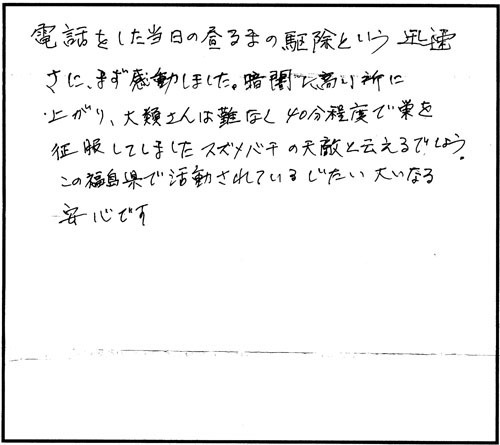 電話をした当日の昼るまの駆除という 迅速
さに、まず感動しました。暗闇に高い所に
上がり、大類さんは難なく40分程度で巣を
征服してしましたスズメバチの天敵と云えるでしょう。
この福島県で活動されているじたい大いなる
安心です